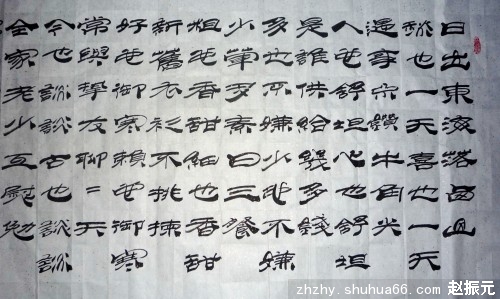 日出東海落西山
愁也一天喜也一天
遇事不鑽牛角尖
人也舒坦心也舒坦
是誰供給幾多錢
多也不嫌少也不嫌
少葷多素日三餐
粗也香甜細也香甜
新舊衣衫不挑揀
好也御寒賴也御寒
常與摯友聊=天
今也談談古也談談
全家老少互慰勉
zhzhy.shuhua66.com/赵振元